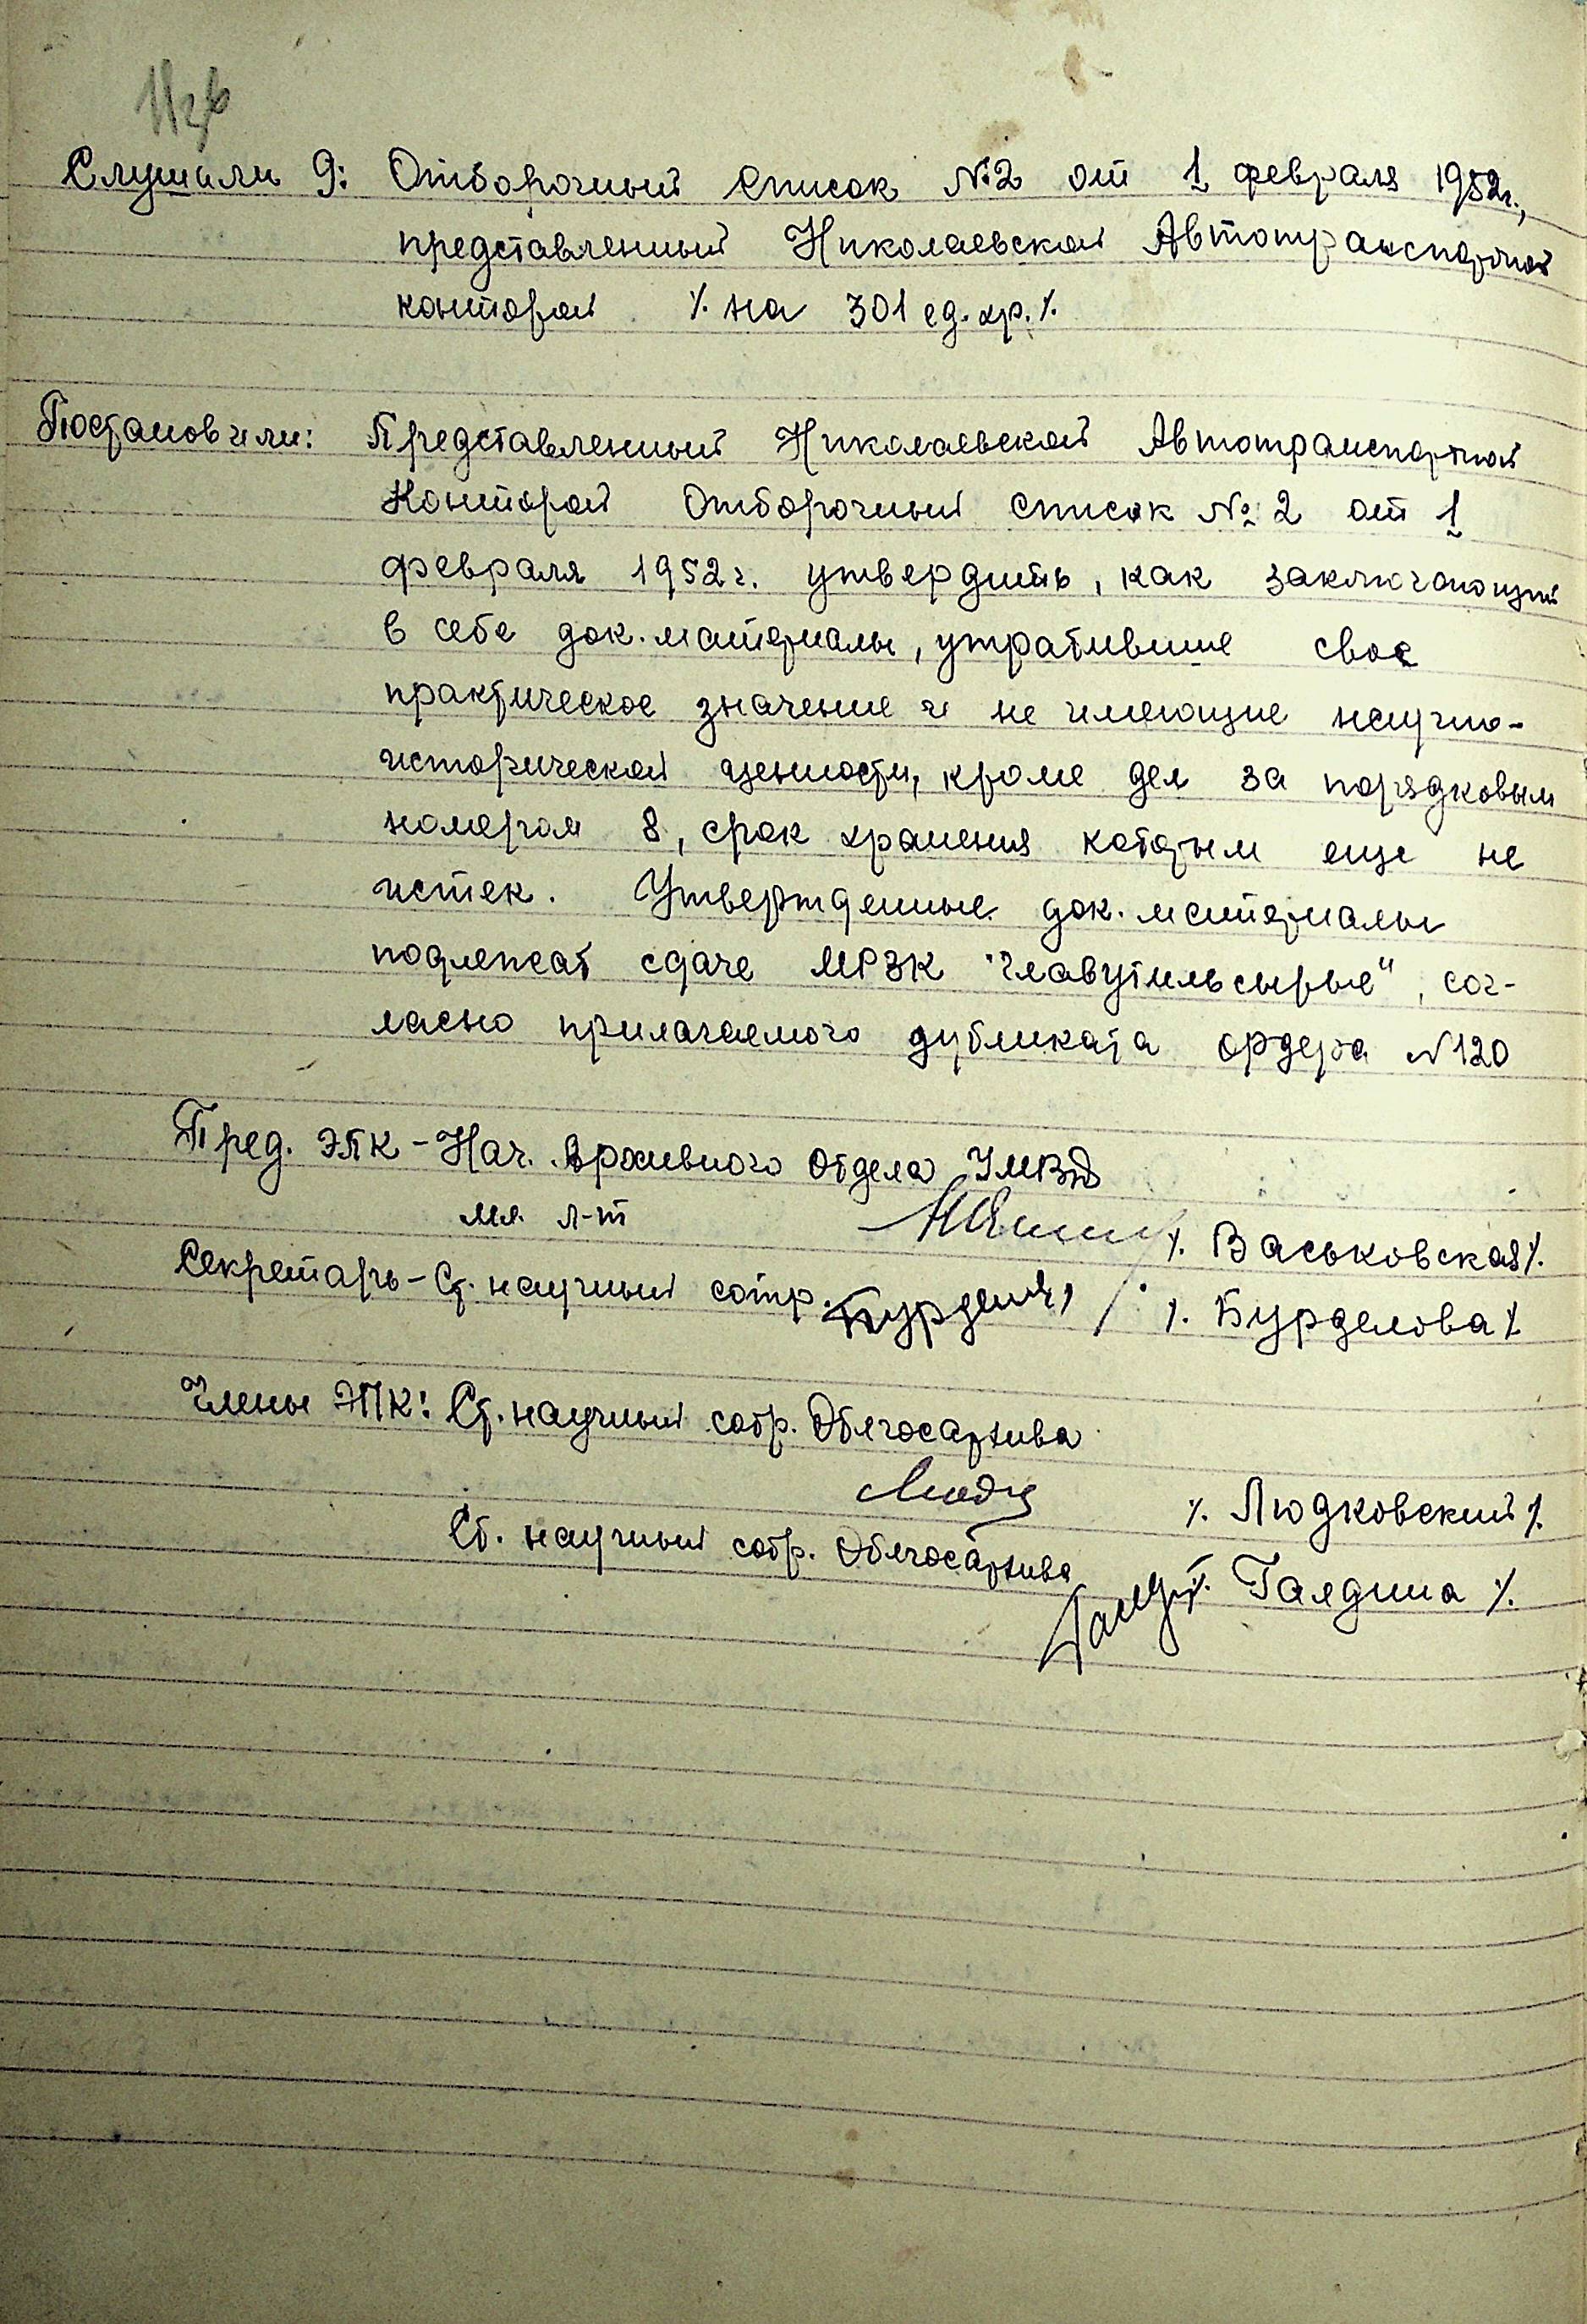 Слушали 9: Отборочный список №2 от 1 февраля 1952г.,
представленный Николаевской Автотранспортной
конторой ٪ на 301 ед. хр. ٪
Постановили: Представленный Николаевской Автотранспортной
Конторой Отборочный список № 2 от 1
февраля 1952 г. утвердить, как заключающий
в себе док. материалы, утратившие свое
практическое значение и не имеющие научно-
исторической ценности, кроме дел за порядковым
номером 8, срок хранения которым еще не
истек. Утвержденные док. материалы
подлежат сдаче МРЗК "Главутильсырье", сог-
ласно прилагаемого дубликата ордера №120
Пред. ЭПК - Нач. Архивного Отдела УМВД
мл. л-т ٪. Васьковская ٪.
Секретарь - Ст. научный сотр. ٪. Бурделова ٪
Члены ЭПК: Ст. научный сотр. Облгосархива
٪. Людковский ٪.
Ст. научный сотр. Облгосархива
٪. Галдина ٪.